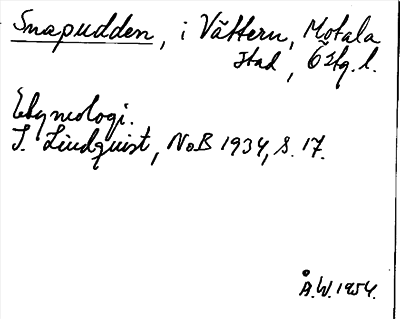 Snapudden, i Vättern, Motala
stad, Östg. l.
Etymologi.
I. Lindquist, NoB 1934, s. 17.
Å.W. 1954.